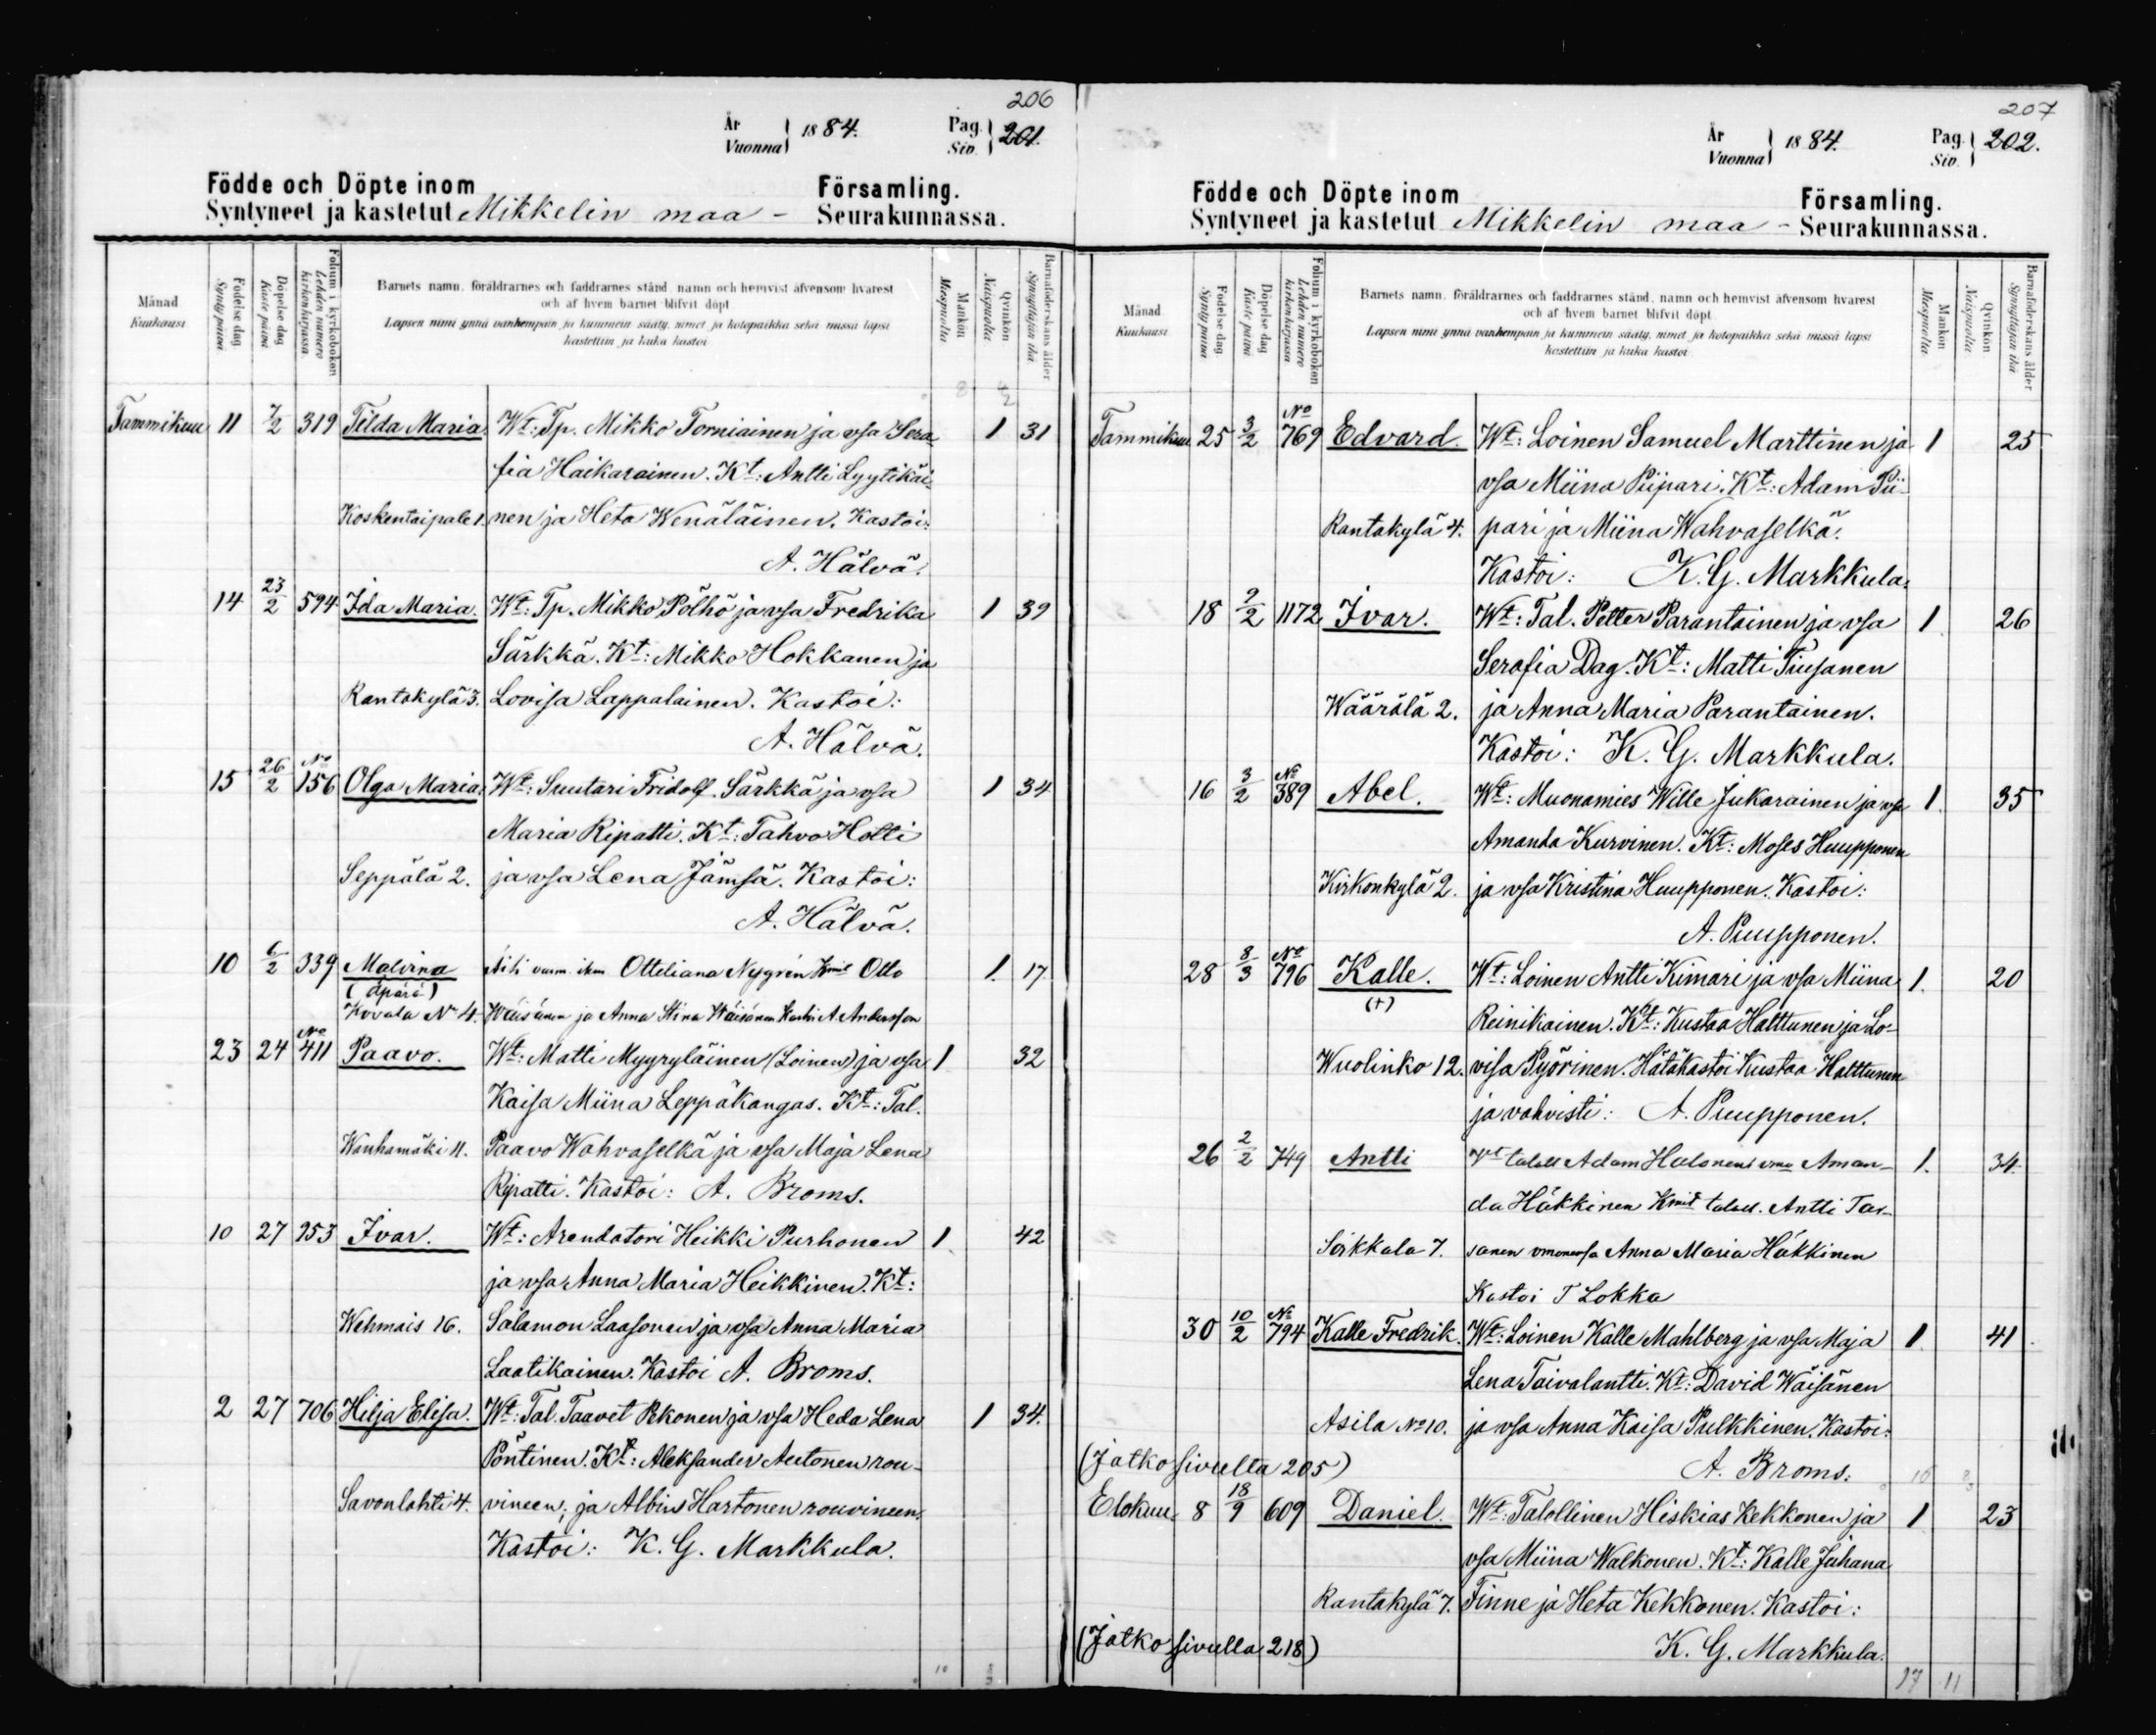 206
År
Vuonna } 1884.
Pag.
Siv. } 201.
Födde och Döpte inom Församling.
Syntyneet ja kastetut Mikkelin maa- Seurakunnassa.
Månad
Kuukausi
Födelse dag
Synty päivä
Döpelse dag
Kaste päivä
Folium i kyrkoboken
Lehden numero
kirkonkirjassa
Barnets namn, föräldrarnes och faddrarnes stånd, namn och hemvist äfvensom hvarest
och af hvem barnet blifvit döpt
Lapsen nimi ynnä vanhempain ja kummein sääty, nimet ja kotopaikka sekä missä lapsi
kastettiin ja kuka kastoi
Mankön
Miespuolta
Qvinkön
Naispuolta
Barnaföderskans ålder
Synnyttäjän ikä
Tammikuu 11 7/2 319 Tilda Maria. Wt: Tp. Mikko Torniainen ja vsa Sera- 1 31
fia Haikarainen. Kt: Antti Lyytikäi-
Koskentaipale 1. nen ja Heta Wenäläinen. Kastoi:
A. Hälvä.
14 23/2 594 Ida Maria. Wt: Tp. Mikko Pölhö ja vsa Fredrika 1 39
Särkkä. Kt: Mikko Hokkanen ja
Rantakylä 3. Lovisa Lappalainen. Kastoi:
A. Hälvä.
15 26/2 No 156 Olga Maria. Wt: Suutari Fridolf Särkkä ja vsa 1 34
Maria Ripatti. Kt: Tahvo Hotti
Seppälä 2. ja vsa Lena Jämsä. Kastoi:
A. Hälvä.
10 6/2 339 Malvina Äiti Otteliana Nygrén Kmit Otto 1. 17
(äpärä)
No 4. Wäisänen ja Anna Stina Wäisänen Kastoi A. Andersson
23 24 No 411 Paavo. Wt: Matti Myyryläinen (Loinen) ja vsa 1 32
Kaisa Miina Leppäkangas. Kt: Tal.
Wanhamäki 11. Paavo Wahvaselkä ja vsa Maja Lena
Ripatti. Kastoi: A. Broms.
10 27 253 Ivar. Wt: Arendatori Heikki Purhonen 1 42
ja vsa Anna Maria Heikkinen. Kt:
Wehmais 16. Salamon Laasonen ja vsa Anna Maria
Laatikainen. Kastoi A. Broms.
2 27 706 Hilja Elisa. Wt: Tal. Taavet Pekonen ja vsa Heda Lena 1 34.
Pöntinen. Kt: Aleksander Autonen rou-
Savonlahti 4. vineen, ja Albius Hartonen rouvineen.
Kastoi: K. G. Markkula.
10
207
År
Vuonna } 1884.
Pag.
Siv. } 202.
Födde och Döpte inom Församling.
Syntyneet ja kastetut Mikkelin maa- Seurakunnassa.
Månad
Kuukausi
Födelse dag
Synty päivä
Döpelse dag
Kaste päivä
Folium i kyrkoboken
Lehden numero
kirkonkirjassa
Barnets namn, föräldrarnes och faddrarnes stånd, namn och hemvist äfvensom hvarest
och af hvem barnet blifvit döpt
Lapsen nimi ynnä vanhempain ja kummein sääty, nimet ja kotopaikka sekä missä lapsi
kastettiin ja kuka kastoi
Mankön
Miespuolta
Qvinkön
Naispuolta
Barnaföderskans ålder
Synnyttäjän ikä
Tammikuu 25 3/2 No 769 Edvard. Wt: Loinen Samuel Marttinen ja 1 25
vsa Miina Piipari. Kt: Adam Pii-
Rantakylä 4. pari ja Miina Wahvaselkä.
Kastoi: K. G. Markkula.
18 9/2 1172 Ivar. Wt: Tal. Petter Parantainen ja vsa 1 26
Serafia Dag. Kt: Matti Tiusanen
Wäärälä 2. ja Anna Maria Parantainen.
Kastoi: K. G. Markkula.
16 3/2 No 389 Abel. Wt: Muonamies Wille Jukarainen ja vsa 1. 35
Amanda Kurvinen. Kt: Moses Huupponen
Kirkonkylä 2. ja vsa Kristina Huupponen. Kastoi:
A. Puupponen.
28 8/3 No 796 Kalle. Wt: Loinen Antti Kimari ja vsa Miina 1. 20
(+)
Reinikainen. Kt: Kustaa Halttunen ja Lo-
Wuolinko 12. visa Pyörinen. Hätäkastoi Kustaa Halttunen
ja vahvisti: A. Puupponen.
26 2/2 749 Antti Vt taloll Adam Halonen vmo Aman- 1. 34.
da Häkkinen Kmit taloll. Antti Tar-
Sirkkala 7. sanen Anna Maria Häkkinen
Kastoi T Lokka
30 10/2 No 794 Kalle Fredrik. Wt: Loinen Kalle Mahlberg ja vsa Maja 1 41
Lena Taivalantti. Kt: David Wäisänen
Asila No 10. ja vsa Anna Kaisa Pulkkinen. Kastoi:
A. Broms.
(Jatko sivulta 205)
Elokuu 8 18/9 609 Daniel. Wt: Talollinen Hiskias Kekkonen ja 1 23
vsa Miina Walkonen. Kt: Kalle Juhana
Rantakylä 7. Finne ja Heta Kekkonen. Kastoi:
K. G. Markkula.
(Jatko sivulla 218)
17 11